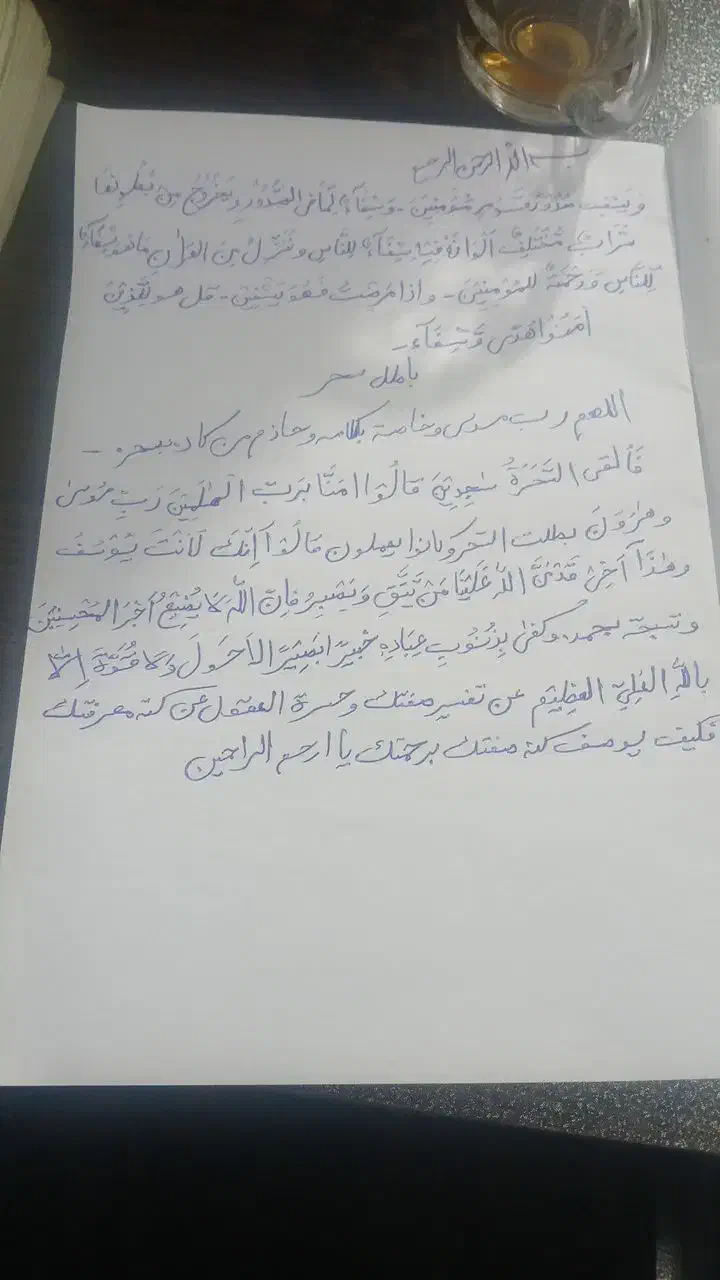 بسم الله الرحمن الرحيم
وَيَشْفِ صُدُورَ قَوْمٍ مُؤْمِنِينَ - وَشِفَآءٌ لِمَا فِى الصُّدُورِ يَخْرُجُ مِنْ بُطُونِهَا
شَرَابٌ مُخْتَلِفٌ اَلْوَانُهُ فِيهِ شِفَآءٌ لِلنَّاسِ وَنُنَزِّلُ مِنَ القُرْاٰنِ مَا هُوَ شِفَآءٌ
لِلنَّاسِ وَرَحْمَةٌ لِلْمُؤمِنِيْنَ - وَاِذَا مَرِضْتُ فَهُوَ يَشْفِيْنِ - قل هو لِلَّذِيْنَ
اٰمَنُوْا هُدًى وَّشِفَآءٌ -
باطل سحر
اللهم رب موسى وخاصة بكلامه من كاده بسحره -
فَاُلقى السَّحَرَةُ سٰجِدِيْنَ قَالُوْا اٰمَنَّا بِرَبِّ الْعٰلَمِيْنَ رَبِّ مُوْسٰى
وَهٰرُوْنَ بطلت السحر وكانوا يعملون قَالُوْآ اَاِنَّكَ لَاَنْتَ يُوْسُفُ
وَهٰذَا آخِىْ قَدْ مَنَّ اللّٰهُ عَلَيْنَا مَنْ يَّتَّقِ وَيَصْبِرْ فَاِنَّ اللّٰهَ لَا يُضِيْعُ اَجْرَ المُحْسِنِيْنَ
وسبحه بحمده وَكَفٰى بِذُنُوْبِ عِبَادِهٖ خَبِيْرًا بَصِيْرًا لَاحَوْلَ وَلَا قُوَّةَ اِلَّا
بِاللّٰهِ العَلِيِّ العَظِيْمِ عن تفسير صفتك وحسرة العقول عن كنه معرفتك
فكيف يوصف كنه صفتك برحمتك يا ارحم الراحمين